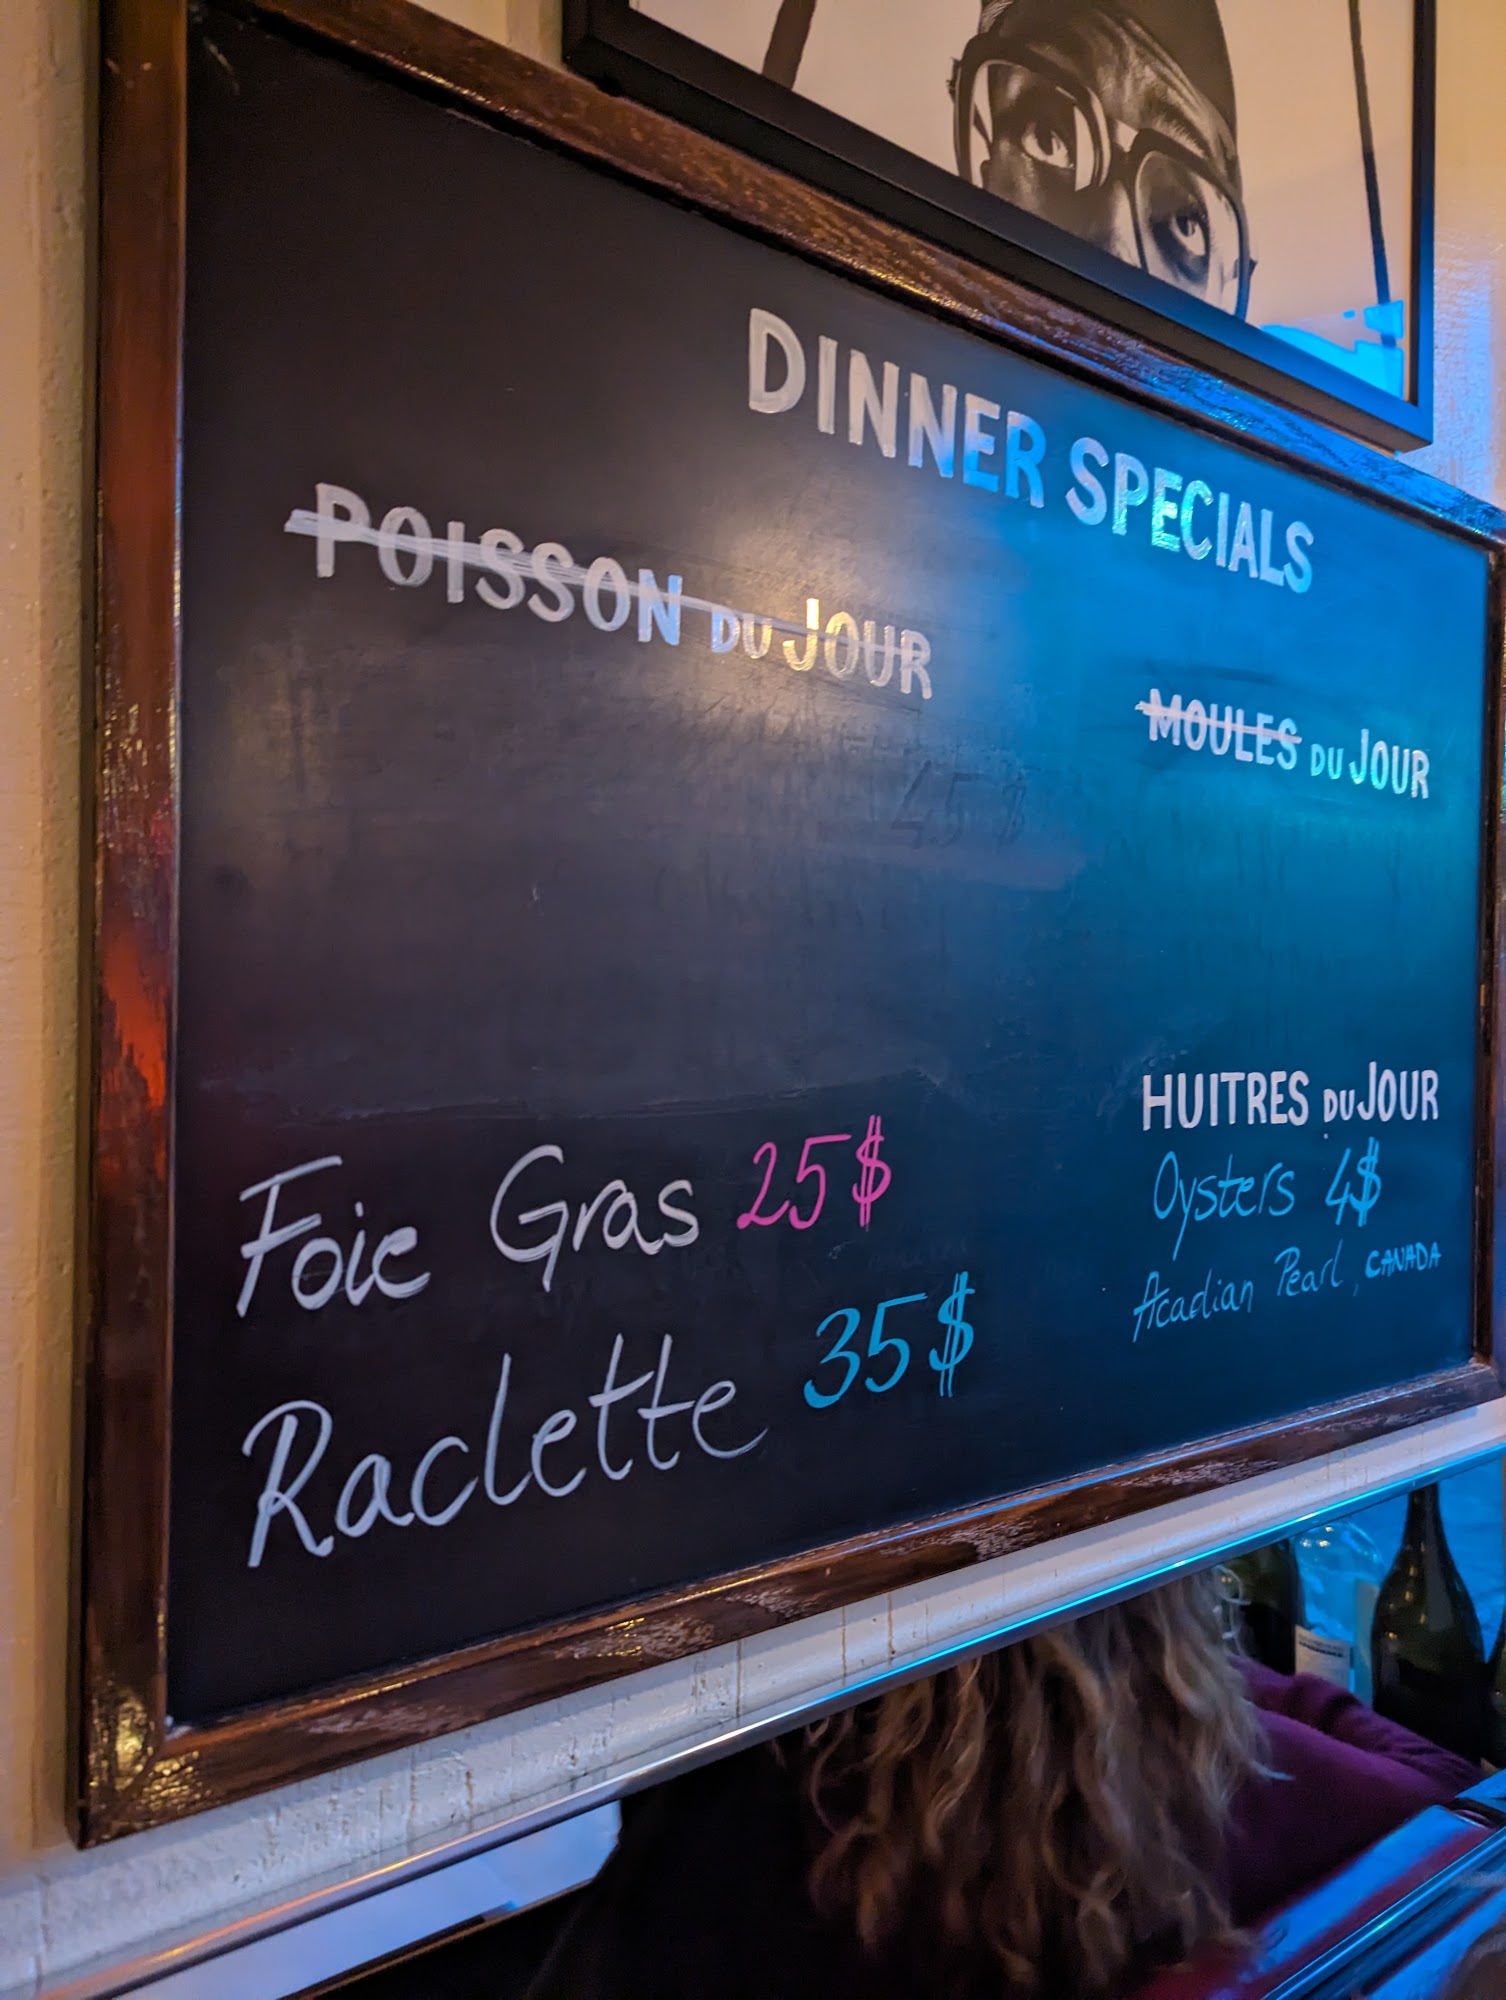 DINNER SPECIALS
POISSON DU JOUR
45$
Foie Gras 25$
Raclette 35$
MOULES DU JOUR
HUITRES DU JOUR
Oysters 4$
Acadian Pearl, CANADA